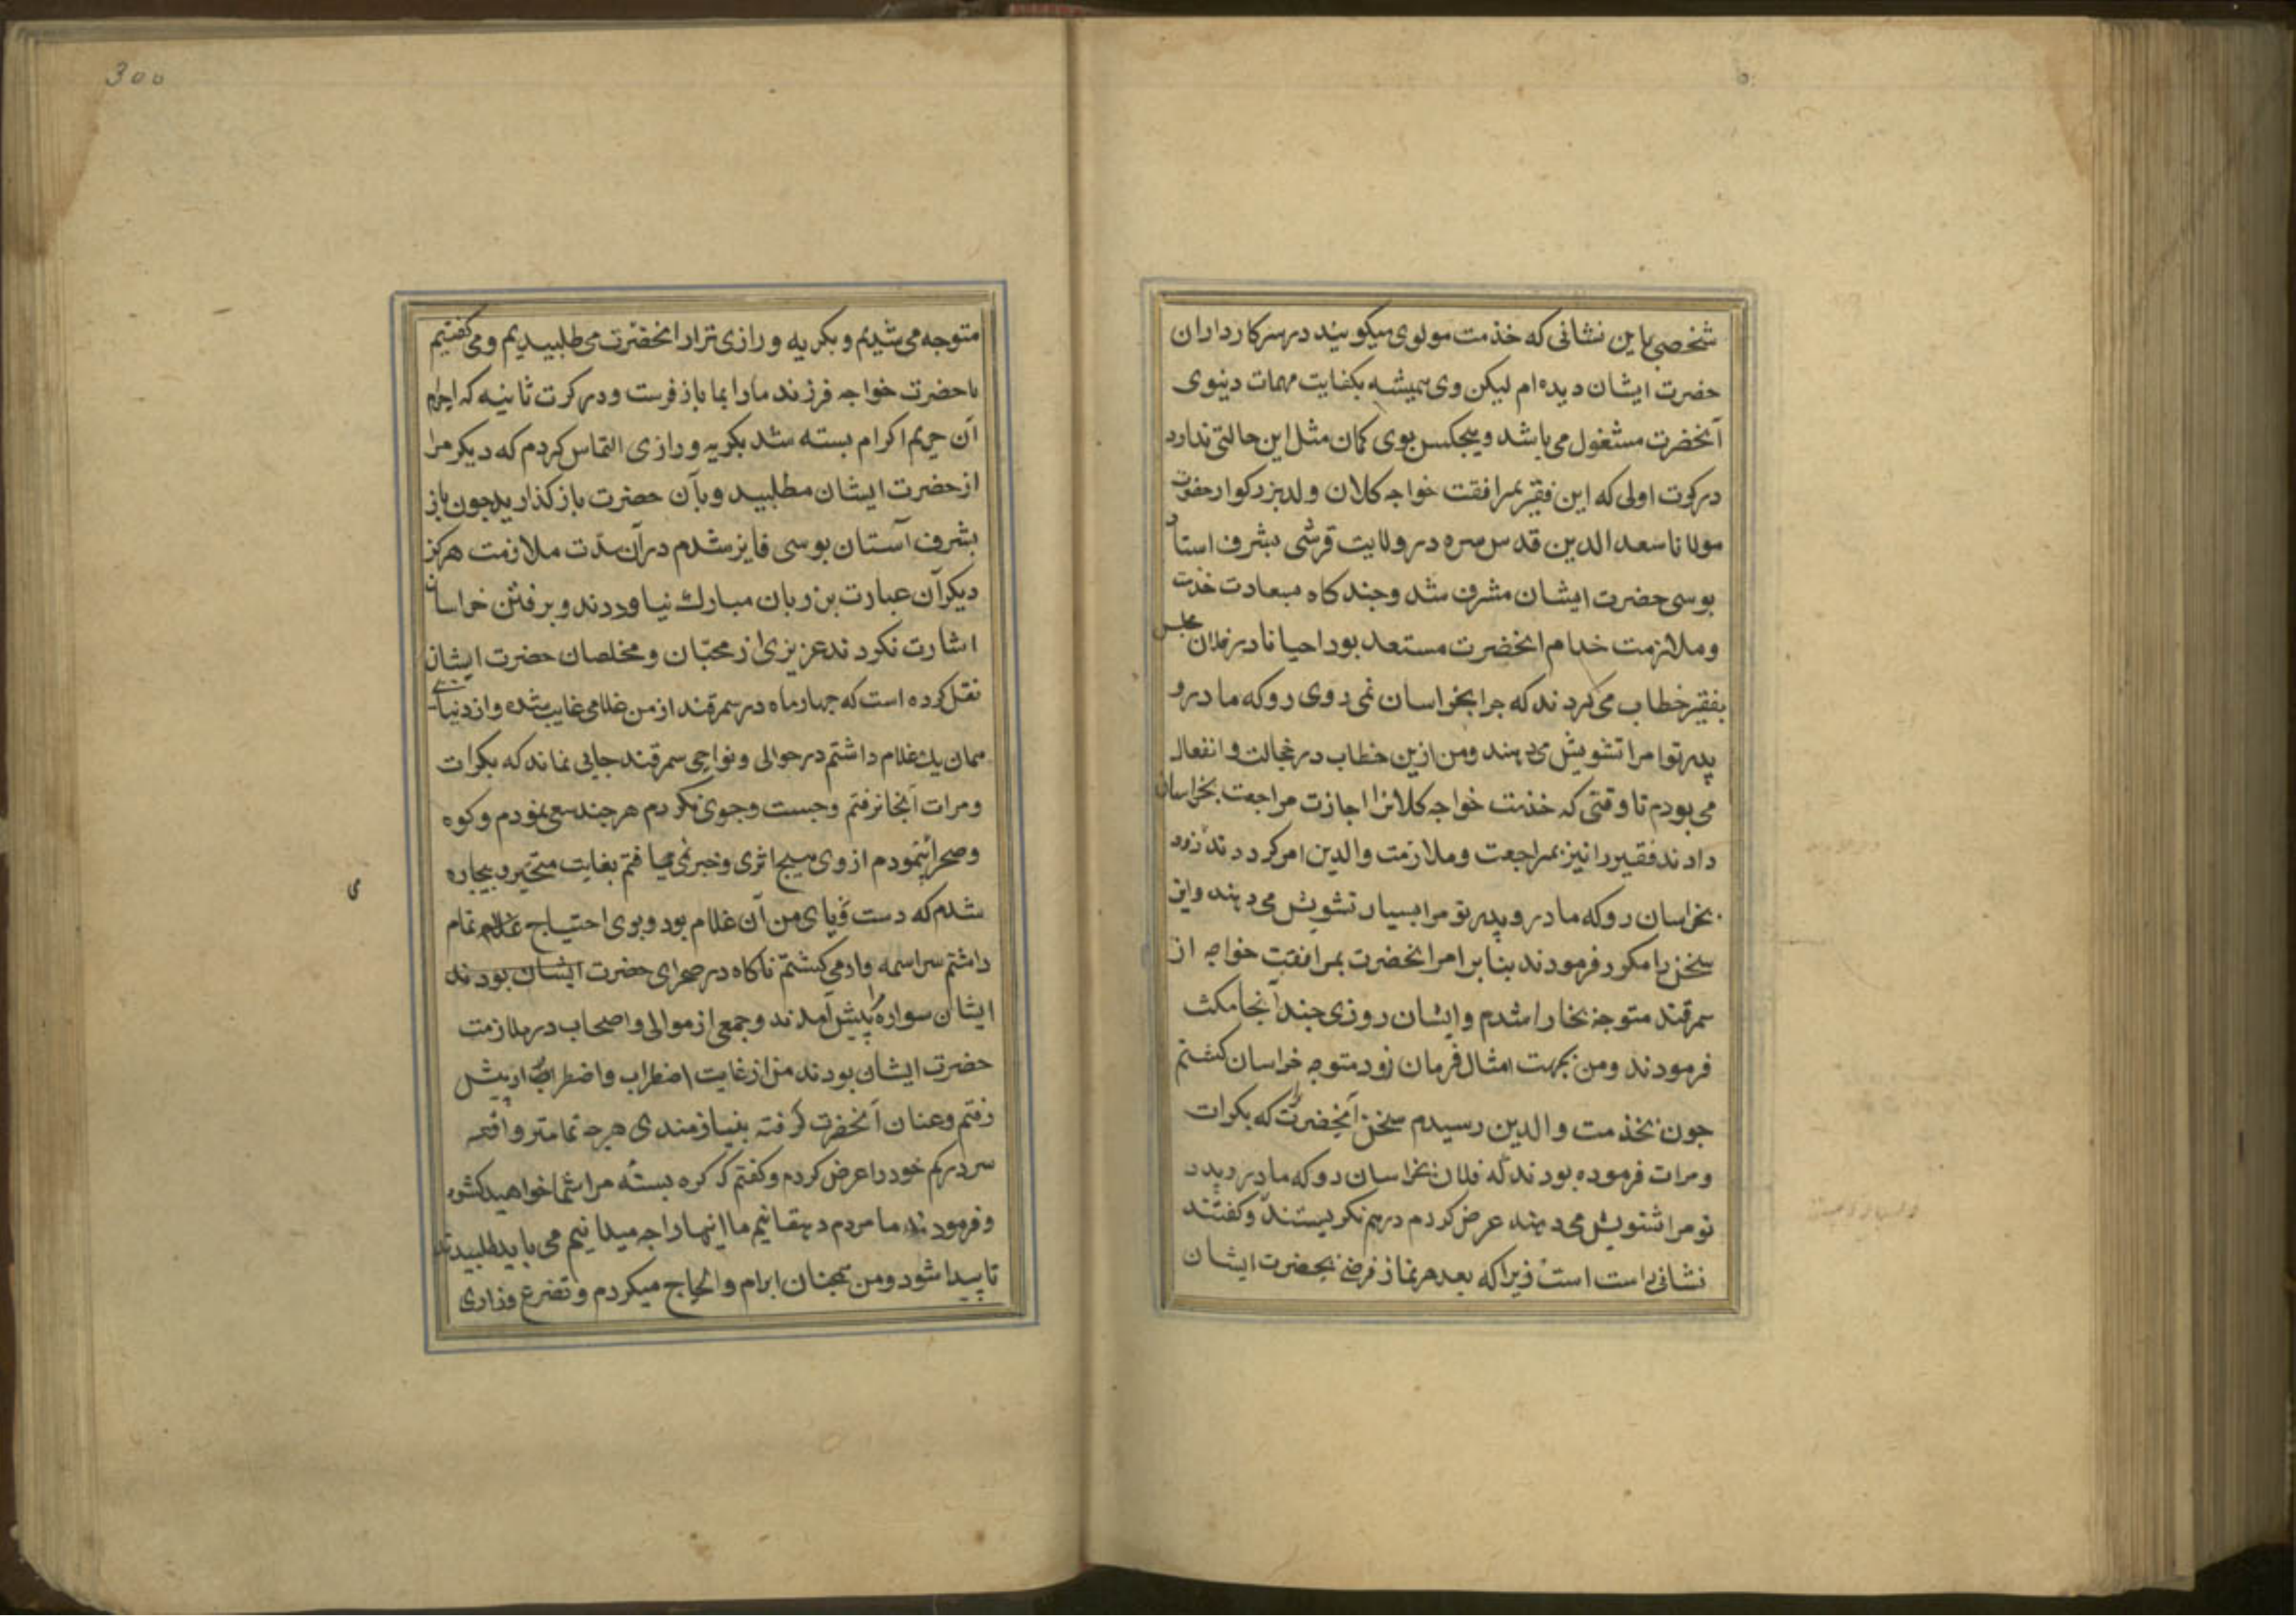 شخصی باین نشانی که خذمت مولوی میکویند در سرکارداران
حضرت ایشان دیده ام لیکن وی همیشه بکفایت مهمات دینوی
آنحضرت مشغول می باشد و هیجکس بوی کمان مثل این حالتی ندارد
در کرت اولی که این فقیر بمرافقت خواجه کلان ولد بزرکوار حضرت
مولانا سعد الدین قدس سره در ولایت قرشی بشرف استان
بوسی حضرت ایشان مشرف شد و جند کاه بسعادت خذمت
و ملازمت خدام انحضرت مستعد بود احیانا در خلال مجلس
بفقیر خطاب می کردند که جرا بخراسان نمی روی رو که مادر و
پدر توا مرا تشویش می دهند و من ازین خطاب در خجالت و انفعال
می بودم تا وقتی که خذمت خواجه کلانرا اجازت مراجعت بخراسان
دادند فقیر را نیز بمراجعت و ملازمت والدین امر کردند زود
بخراسان رو که مادر و پدر تو مرا بسیار تشویش می دهند و این
سخن را مکرر فرمودند بنا بر امر انحضرت بمرافقت خواجه از
سمرقند متوجه بخارا شدم و ایشان روزی جند آنجا مکث
فرمودند و من بجهت امثال فرمان زود متوجه خراسان کشتم
جون بخذمت والدین رسیدم سخن آنحضرت را که بکرات
و مرات فرموده بودند که فلان بخراسان رو که مادر و پدر
تو مرا تشویش می دهند عرض کردم درهم نکریستند و کفتند
نشانی راست است زیرا که بعد هر نماز فرضی بحضرت ایشان
300
متوجه می شدیم و بکریه و زاری ترا از انحضرت می طلبیدیم و می کفتیم
یا حضرت خواجه فرزند ما را بما باز فرست و در کرت ثانیه که احرام
آن حریم اکرام بسته شد بکریه و زاری التماس کردم که دیکر مرا
از حضرت ایشان مطلبید و بآن حضرت باز کذارید جون باز
بشرف آستان بوسی فایز شدم در آن مدت ملازمت هرکز
دیکر آن عبارت بر زبان مبارک نیاوردند و برفتن خراسان
اشارت نکردند عزیزی از محبّان و مخلصان حضرت ایشان
نقل کرده است که جهار ماه در سمرقند از من غلامی غایب شده و از دنیا
همان یک غلام داشتم در حوالی و نواحی سمرقند جایی نماند که بکرات
و مرات آنجا نرفتم و جست و جوی نکردم هر جند سعی نمودم و کوه
و صحرا پیمودم از وی هیج اثری و خبر نمی یافتم بغایت متحیر و بیجاره
شدم که دست و پای من آن غلام بود و بوی احتیاج تمام
داشتم سراسیمه وار می کشتم ناکاه در صحرای حضرت ایشان بودند
ایشان سواره پیش آمدند و جمعی از موالی و اصحاب در ملازمت
حضرت ایشان بودند من از غایت اضطراب و اضطرار پیش
رفتم و عنان آنحضرت کرفته بنیازمندی هرجه تمامتر واقعه
سر درکم خود را عرض کردم و کفتم که کره بسته مرا شما خواهید کشود
و فرمودند ما مردم دهقانیم ما اینها را جه میدانیم می باید طلبید
تا پیدا شود و من همجنان ابرام و الحاح میکردم و تضرع وزاری